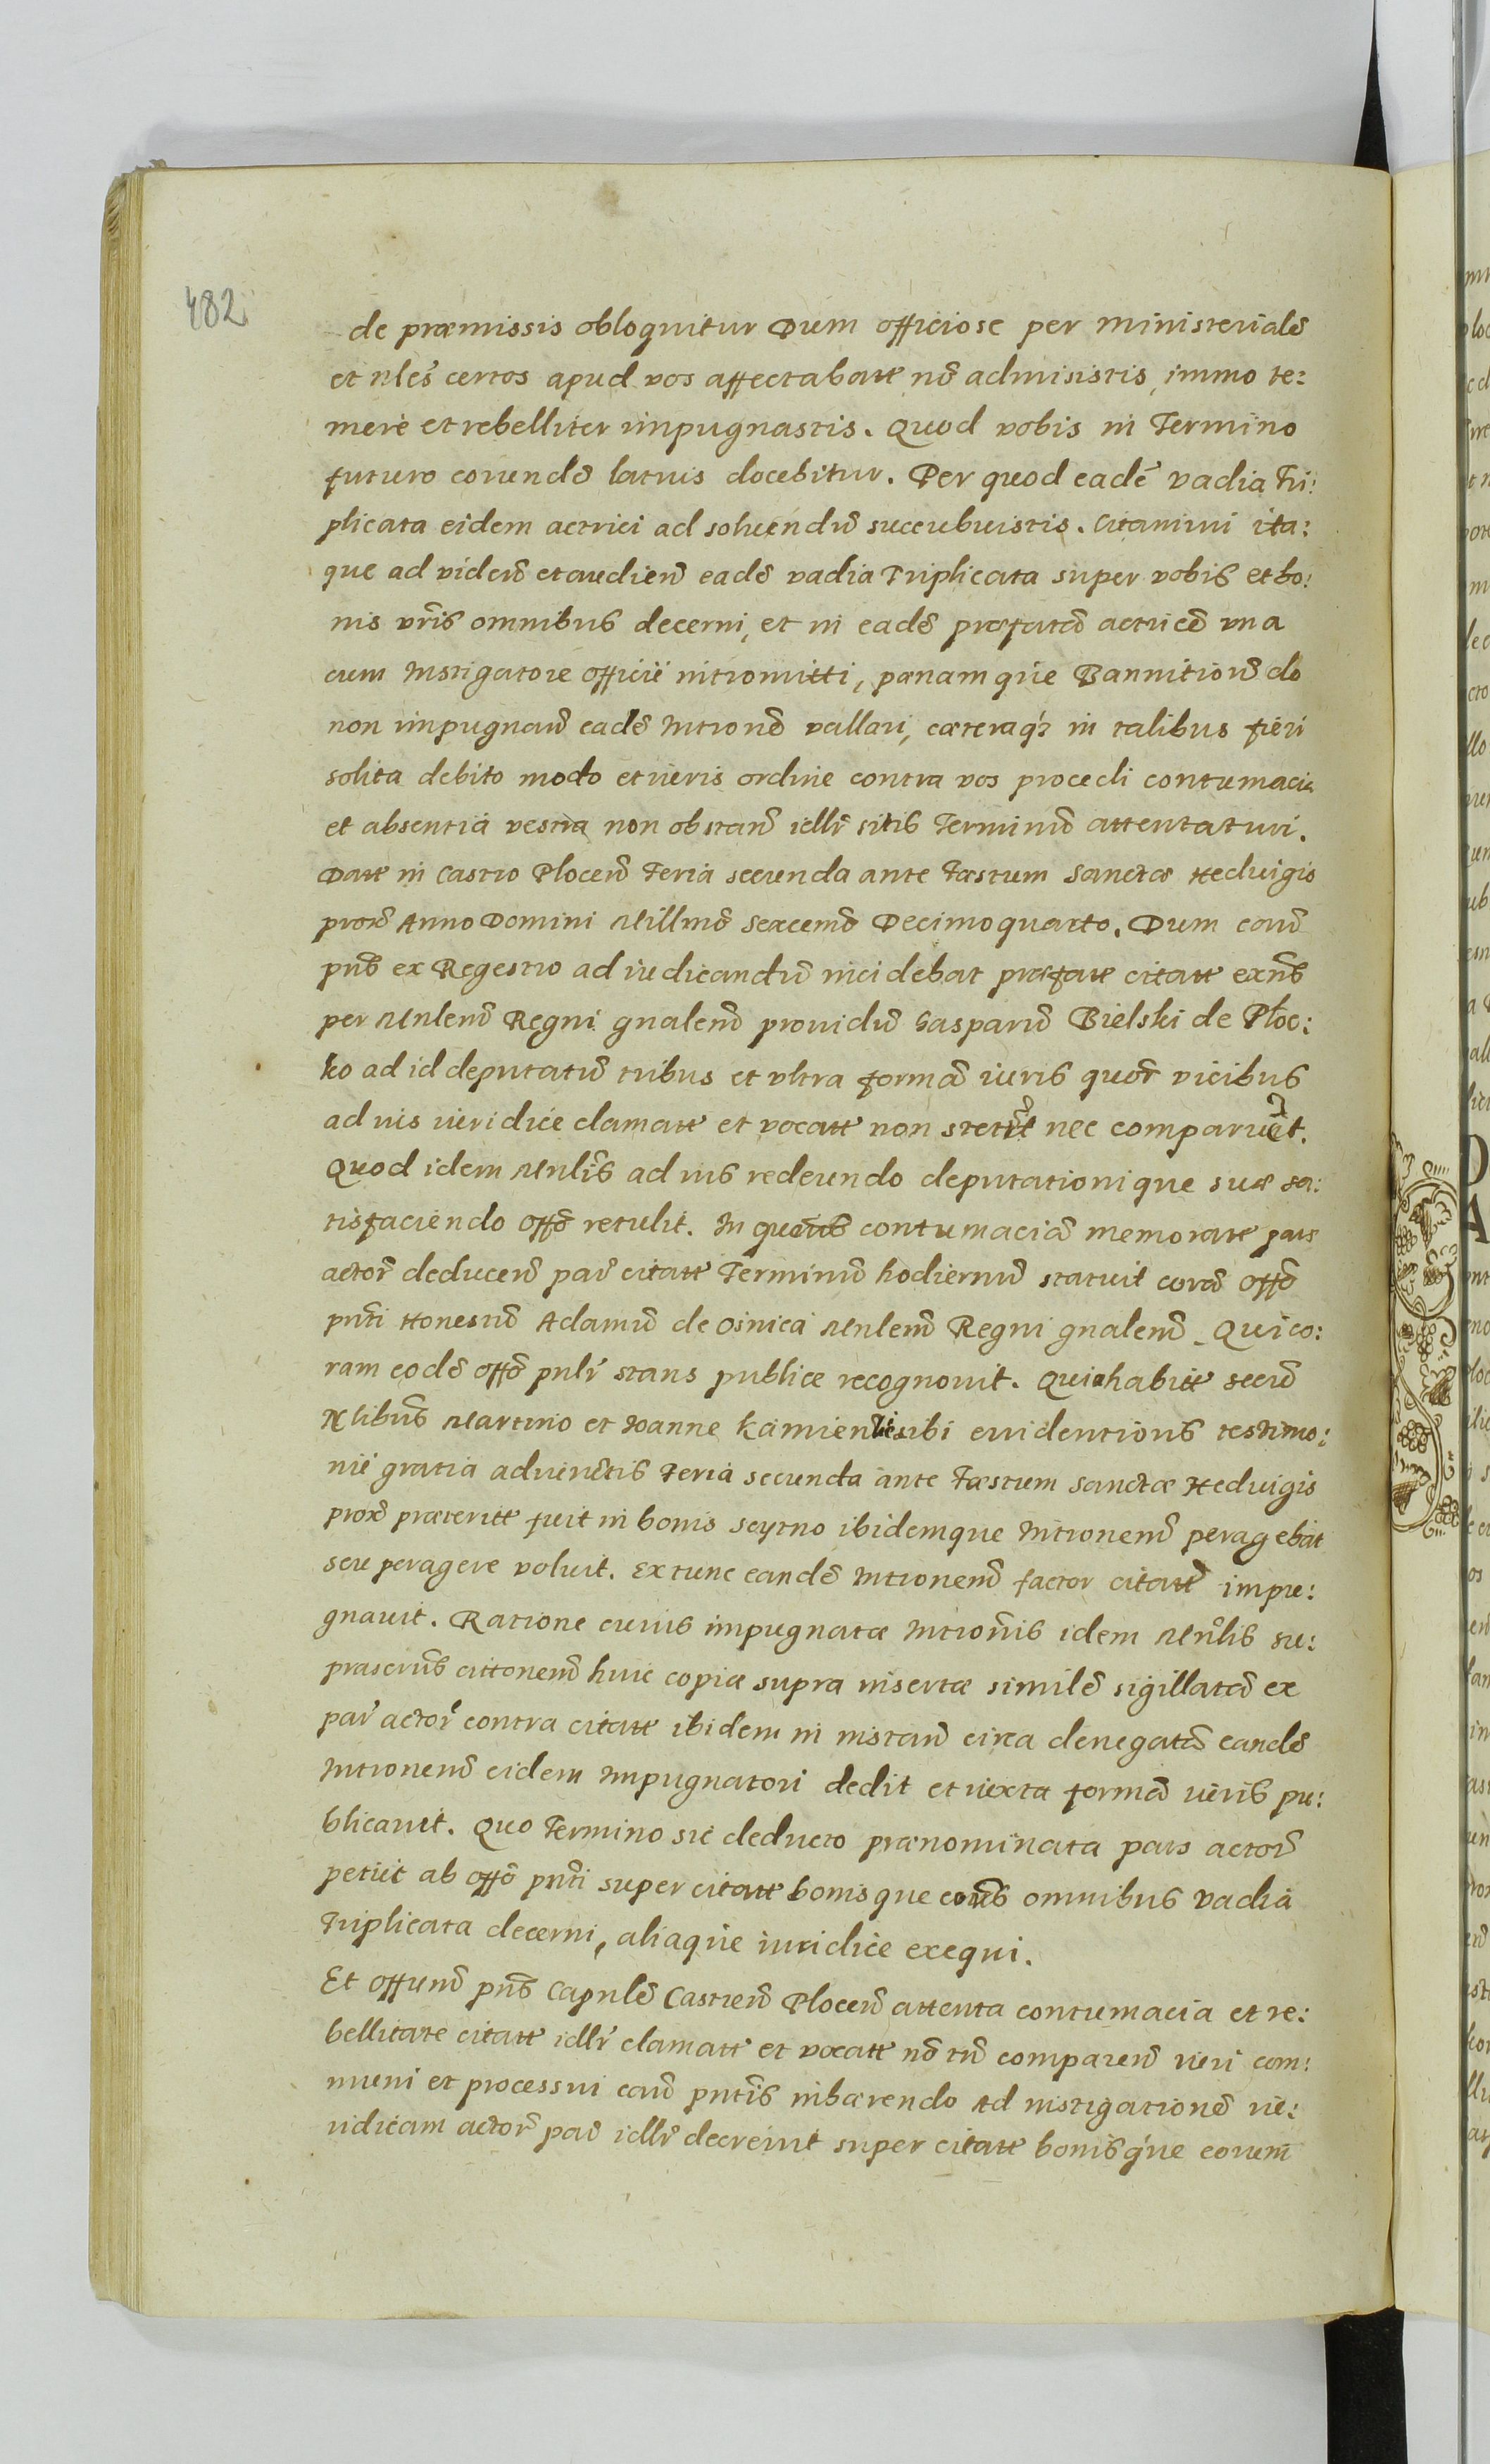 482
de præmissis obloquitur Dum officiose per ministerialē
et nles̄ certos apud vos affectabatt nō admisistis, immo te:
mere et rebelliter impugnastis. Quod vobis in Termino
futuro corundē latius docebitur. Per quod eadē vadia Tri:
plicata eidem actrici ad soluendū succubuistis. Citamini ita:
que ad videnō et audienō eadē vadia Triplicata super vobis et bo:
nis vr̄is omnibus decerni, et in eadē præfatā actricē una
cum Instigatore officii intromitti, pænamque Bannitionis de
non impugnanō eadē Intronē vallari, cæteraq₃ in talibus fieri
solita debito modo et iuris ordine contra vos procedi contumacia
et absentia vestra non obstanō idlr̄ sitis Terminū attentaturi.
Datt in Castro Plocenō Feria secunda ante Fæstum Sanctæ Heduigis
proxē Anno Domini Millmō Sexcenmō Decimoquarto. Dum cauō
pn̄s ex Regestro ad iudicandū incidebat præfatt citatt exn̄s
per Mnlenō Regni gnalenō prouidū Gasparū Bielski de Ploc:
ko ad id deputatū tribus et vltra formā iuris quor̄ vicibus
ad uis iuridice clamatt et vocatt non stetit nec comparuit.
Quod idem Mnlis̄ ad ius redeundo deputationique suæ sa:
tisfaciendo offō retulit. In quorūs contumaciā memoratt pars
actor̄ deducenō par̄ citatt Terminū hodiernū statuit corā offō
pnti Honestū Adamū de Osnica Mnlenō Regni gnalenō. Qui co:
ram eodē offō pnlr̄ stans publice recognouit. Quia habitt secū
Nlibus̄ Martino et Ioanne Kamienski sibi euidentionis testimo:
nii gratia aduenctis Feria secunda ante Fæstum Sanctæ Heduigis
proxē præteritt fuit in bonis Seytno ibidemque Intronenō peragebat
seu peragere voluit. Extunc eandē Intronenō factor citatt impu:
gnauit. Ratione cuius impugnatæ Intronis̄ idem Mnlis̄ su:
prascrn̄s cittonenō huic copiæ supra insertæ similē sigillatā ex
par̄ actor̄ contra citatt ibidem in instanō circa denegatā eandē
Intronenō eidem Impugnatori dedit et iuxta formā iuris pu:
blicauit. Quo Termino sic deducto prænominata pars actor̄
petiit ab offō pnti super citatt bonisque eorūs omnibus vadia
Triplicata decerni, aliaque iuridice exequi.
Et offiunō pn̄s Capnlē Castrenō Plocenō attenta contumacia et re:
bellitate citatt idlr̄ clamatt et vocatt nō tn̄ comparenō iuri com:
muni et processui cauō pntis̄ inhærendo Ad instigationē iu:
ridicam actor̄ par̄ idlr̄ decreuit super citatt bonisque eorum